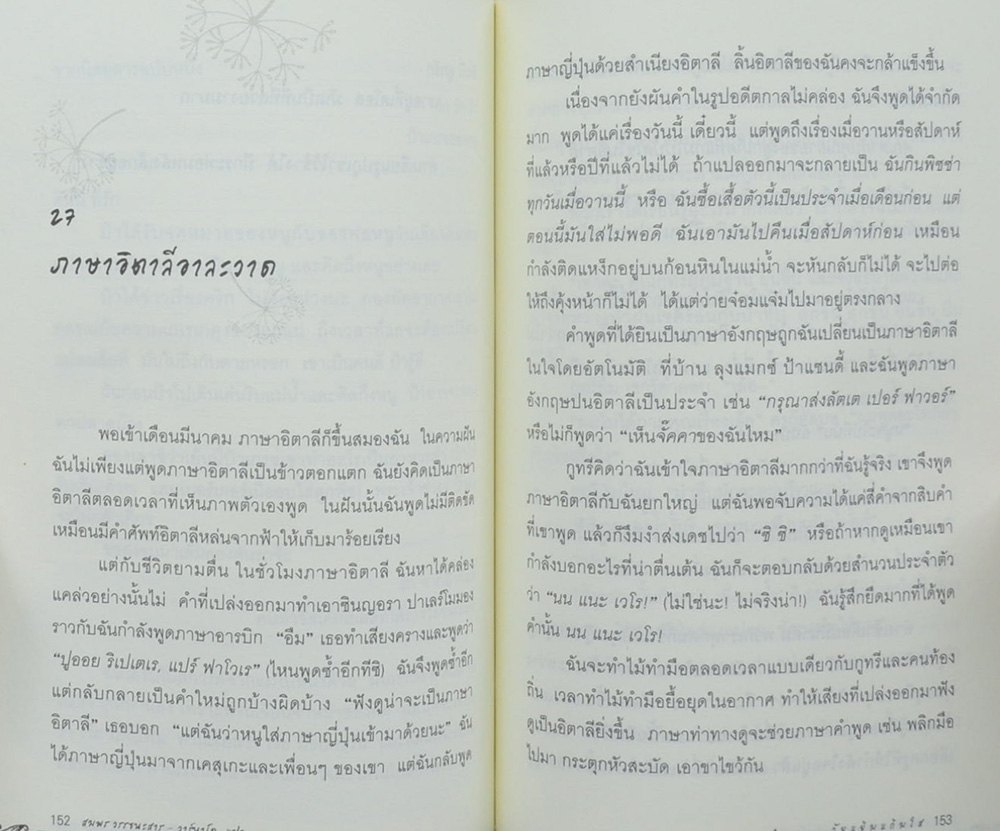 27
ภาษาอิตาลีอาละวาด
พอเข้าเดือนมีนาคม ภาษาอิตาลีก็ขึ้นสมองฉัน ในความฝัน
ฉันไม่เพียงแต่พูดภาษาอิตาลีเป็นข้าวตอกแตก ฉันยังคิดเป็นภาษา
อิตาลีตลอดเวลาที่เห็นภาพตัวเองพูด ในฝันนั้นฉันพูดไม่มีติดขัด
เหมือนมีคำศัพท์อิตาลีหล่นจากฟ้าให้เก็บมาร้อยเรียง
แต่กับชีวิตยามตื่น ในชั่วโมงภาษาอิตาลี ฉันหาได้คล่อง
แคล่วอย่างนั้นไม่ คำที่เปล่งออกมาทำเอาซินญอรา ปาเลร์โมมอง
ราวกับฉันกำลังพูดภาษาอารบิก “อืม” เธอทำเสียงครางและพูดว่า
“ปูออย ริเปเตเร, แปร์ ฟาโวเร” (ไหนพูดซ้ำอีกทีซิ) ฉันจึงพูดซ้ำอีก
แต่กลับกลายเป็นคำใหม่ถูกบ้างผิดบ้าง “ฟังดูน่าจะเป็นภาษา
อิตาลี” เธอบอก “แต่ฉันว่าหนูใส่ภาษาญี่ปุ่นเข้ามาด้วยนะ” ฉัน
ได้ภาษาญี่ปุ่นมาจากเคสุเกะและเพื่อนๆ ของเขา แต่ฉันกลับพูด
152
ภาษาญี่ปุ่นด้วยสำเนียงอิตาลี ลิ้นอิตาลีของฉันคงจะกล้าแข็งขึ้น
เนื่องจากยังผันคำในรูปอดีตกาลไม่คล่อง ฉันจึงพูดได้จำกัด
มาก พูดได้แค่เรื่องวันนี้ เดี๋ยวนี้ แต่พูดถึงเรื่องเมื่อวานหรือสัปดาห์
ที่แล้วหรือปีที่แล้วไม่ได้ ถ้าแปลออกมาจะกลายเป็น ฉันกินพิซซ่า
ทุกวันเมื่อวานนี้ หรือ ฉันซื้อเสื้อตัวนี้เป็นประจำเมื่อเดือนก่อน แต่
ตอนนี้มันใส่ไม่พอดี ฉันเอามันไปคืนเมื่อสัปดาห์ก่อน เหมือน
กำลังติดแหง็กอยู่บนก้อนหินในแม่น้ำ จะหันกลับก็ไม่ได้ จะไปต่อ
ให้ถึงคุ้งหน้าก็ไม่ได้ ได้แต่ว่ายจ๋อมแจ๋มไปมาอยู่ตรงกลาง
คำพูดที่ได้ยินเป็นภาษาอังกฤษถูกฉันเปลี่ยนเป็นภาษาอิตาลี
ในใจโดยอัตโนมัติ ที่บ้าน ลุงแมกซ์ ป้าแซนดี้ และฉันพูดภาษา
อังกฤษปนอิตาลีเป็นประจำ เช่น “กรุณาส่งลัตเต เปอร์ ฟาวอร์”
หรือไม่ก็พูดว่า “เห็นจั๊คคาของฉันไหม”
กูทรีคิดว่าฉันเข้าใจภาษาอิตาลีมากกว่าที่ฉันรู้จริง เขาจึงพูด
ภาษาอิตาลีกับฉันยกใหญ่ แต่ฉันพอจับความได้แค่สี่คำจากสิบคำ
ที่เขาพูด แล้วก็งึมงำส่งเดชไปว่า “ซิ ซิ” หรือถ้าหากดูเหมือนเขา
กำลังบอกอะไรที่น่าตื่นเต้น ฉันก็จะตอบกลับด้วยสำนวนประจำตัว
ว่า “นน แนะ เวโร!” (ไม่ใช่นะ! ไม่จริงน่า!) ฉันรู้สึกยืดมากที่ได้พูด
คำนั้น นน แนะ เวโร!
ฉันจะทำไม้ทำมือตลอดเวลาแบบเดียวกับกูทรีและคนท้อง
ถิ่น เวลาทำไม้ทำมือยื้อยุดในอากาศ ทำให้เสียงที่เปล่งออกมาฟัง
ดูเป็นอิตาลียิ่งขึ้น ภาษาท่าทางดูจะช่วยภาษาคำพูด เช่น พลิกมือ
ไปมา กระตุกหัวสะบัด เอาขาไขว้กัน
153